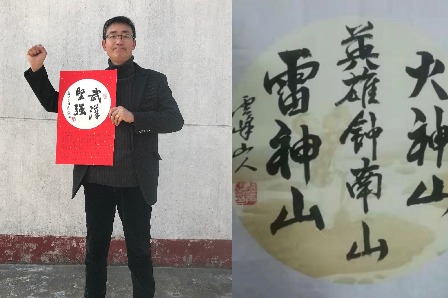 武漢
坚强
火神山
英雄钟南山
雷神山
雲峰山人